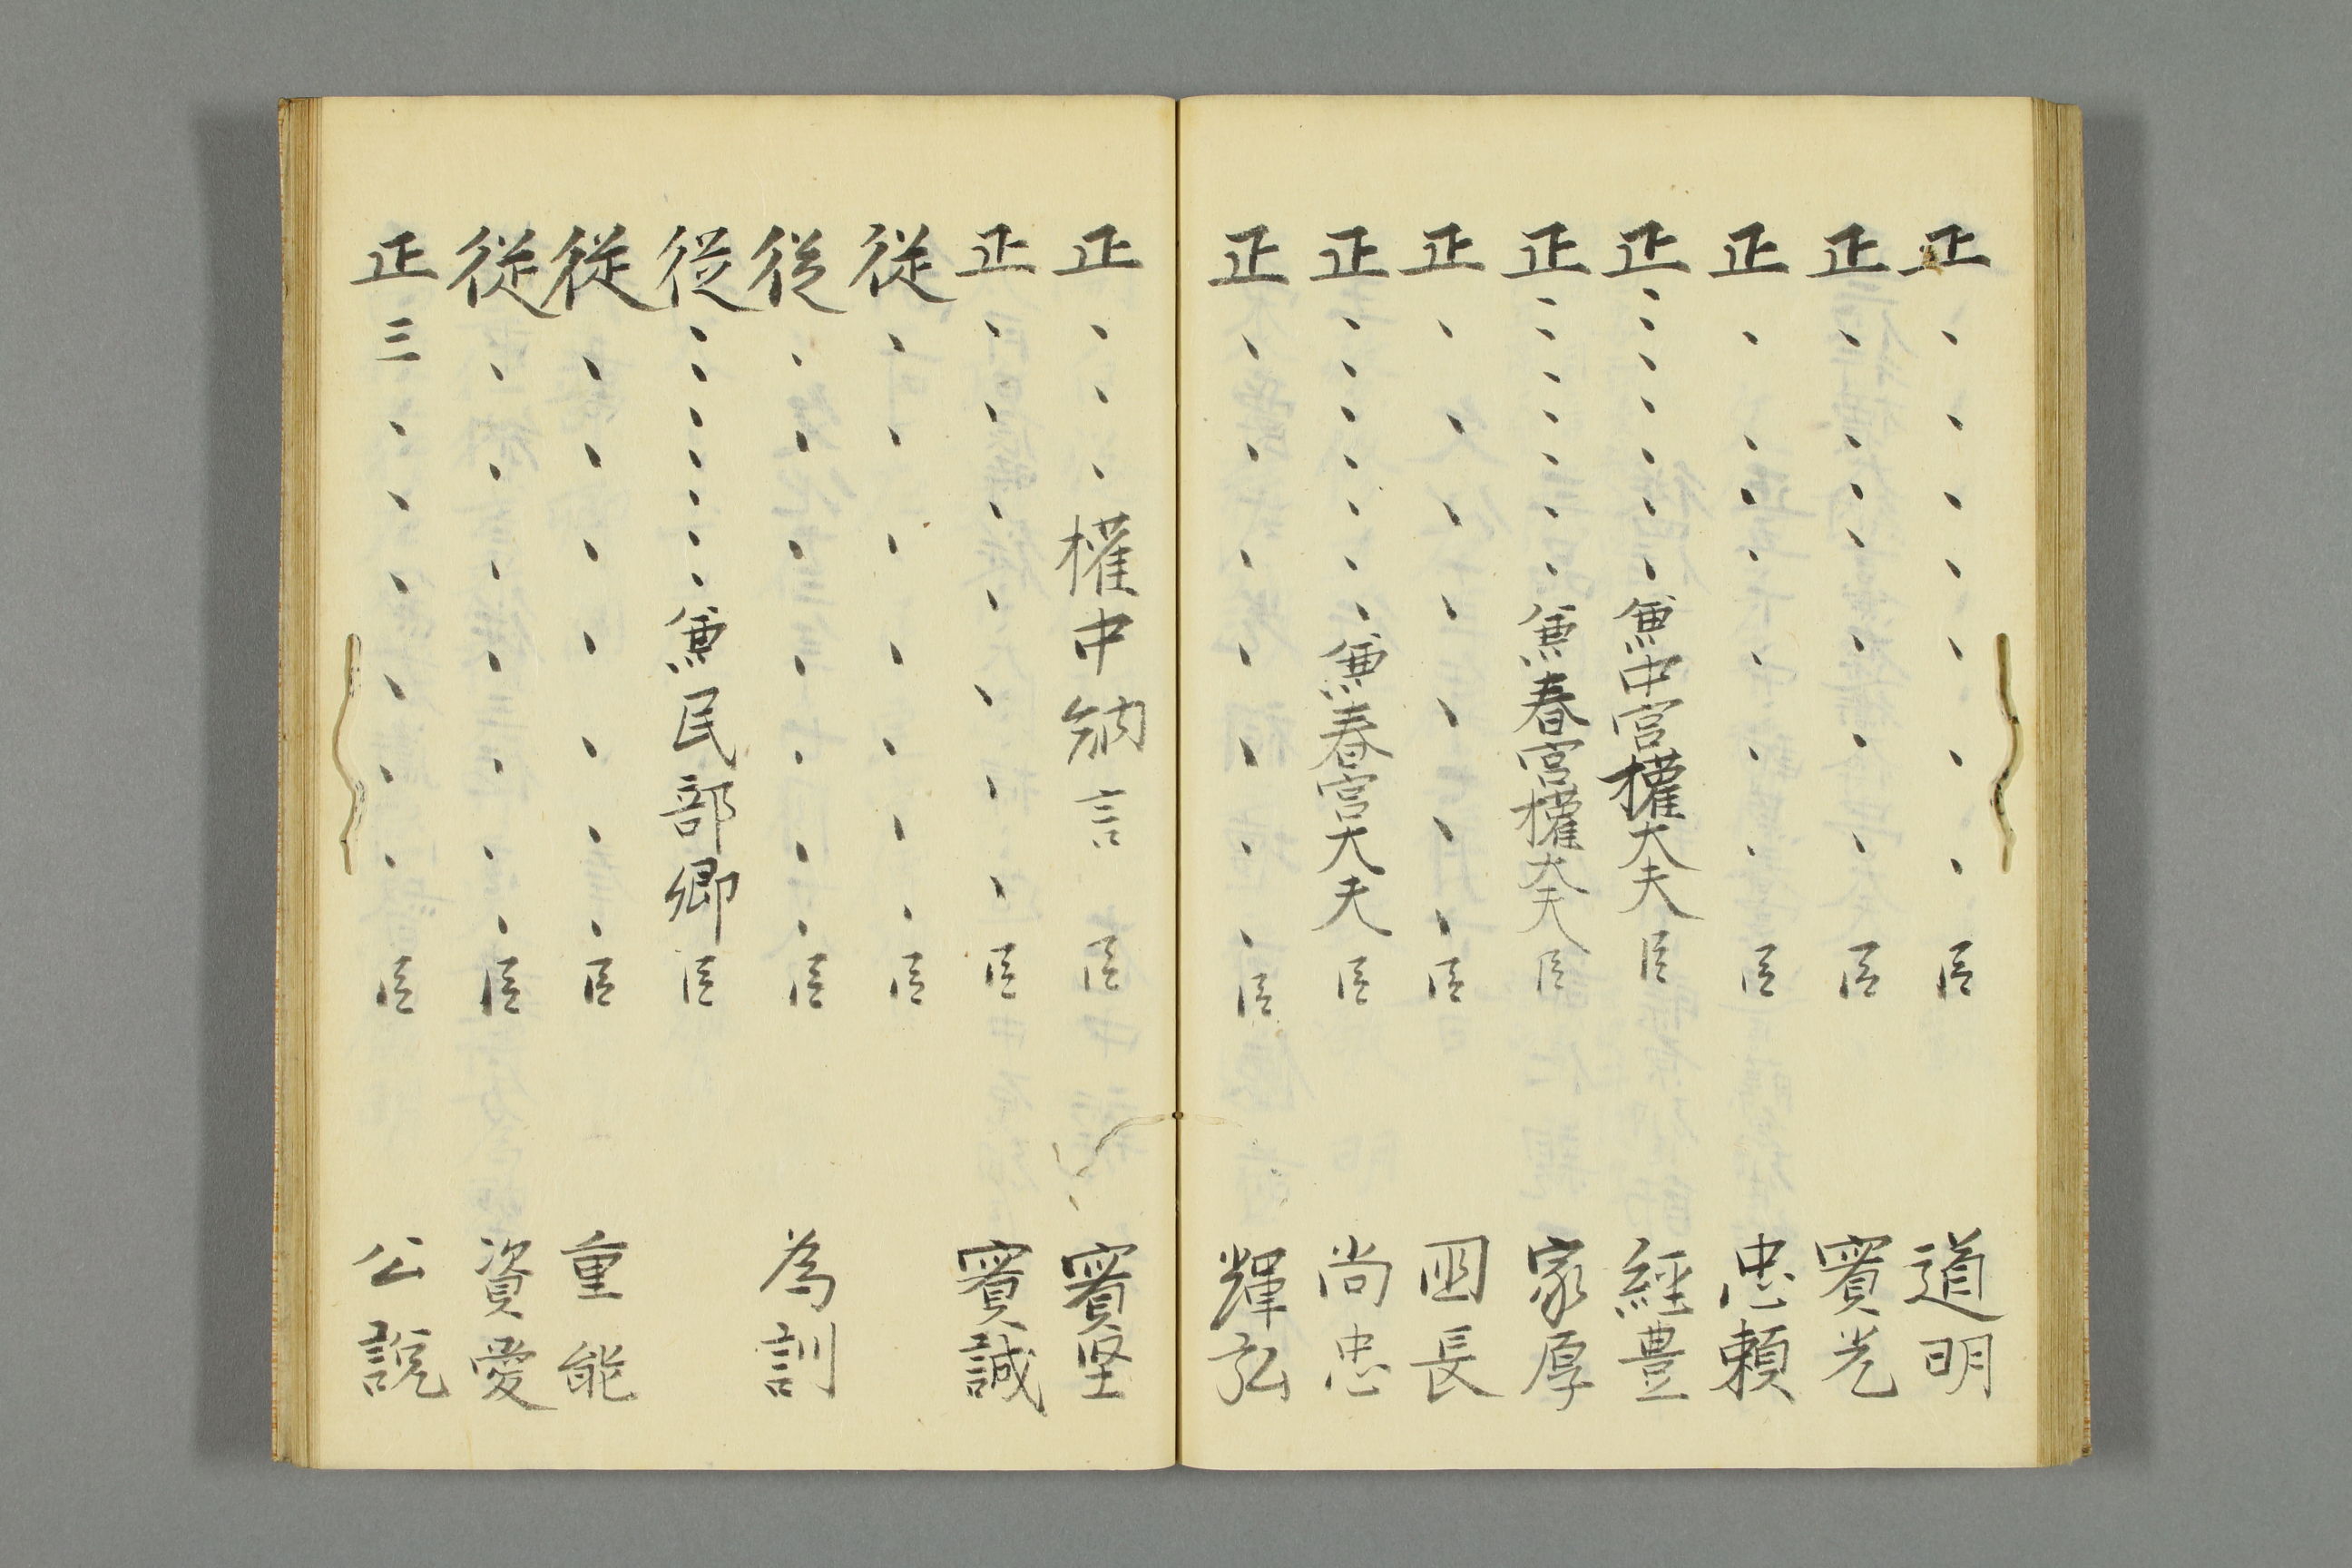 正、、、、、、、臣 道明
正、、、、、、、臣 實光
正、、、、、、、臣 忠頼
正、、、、、、、、兼中宮權大夫臣 經豊
正、、、、、、、兼春宮權大夫臣 家厚
正、、、、、、、臣 国長
正、、、、、、、兼春宮大夫臣 尚忠
正、、、、、、、臣 輝弘
正、、、權中納言臣 實堅
正、、、、、、、臣 實誠
従、、、、、、、臣
従、、、、、、、臣 為訓
従、、、、、、、兼民部卿臣
従、、、、、、、臣 重能
従、、、、、、、臣 資愛
正三、、、、、、臣 公説